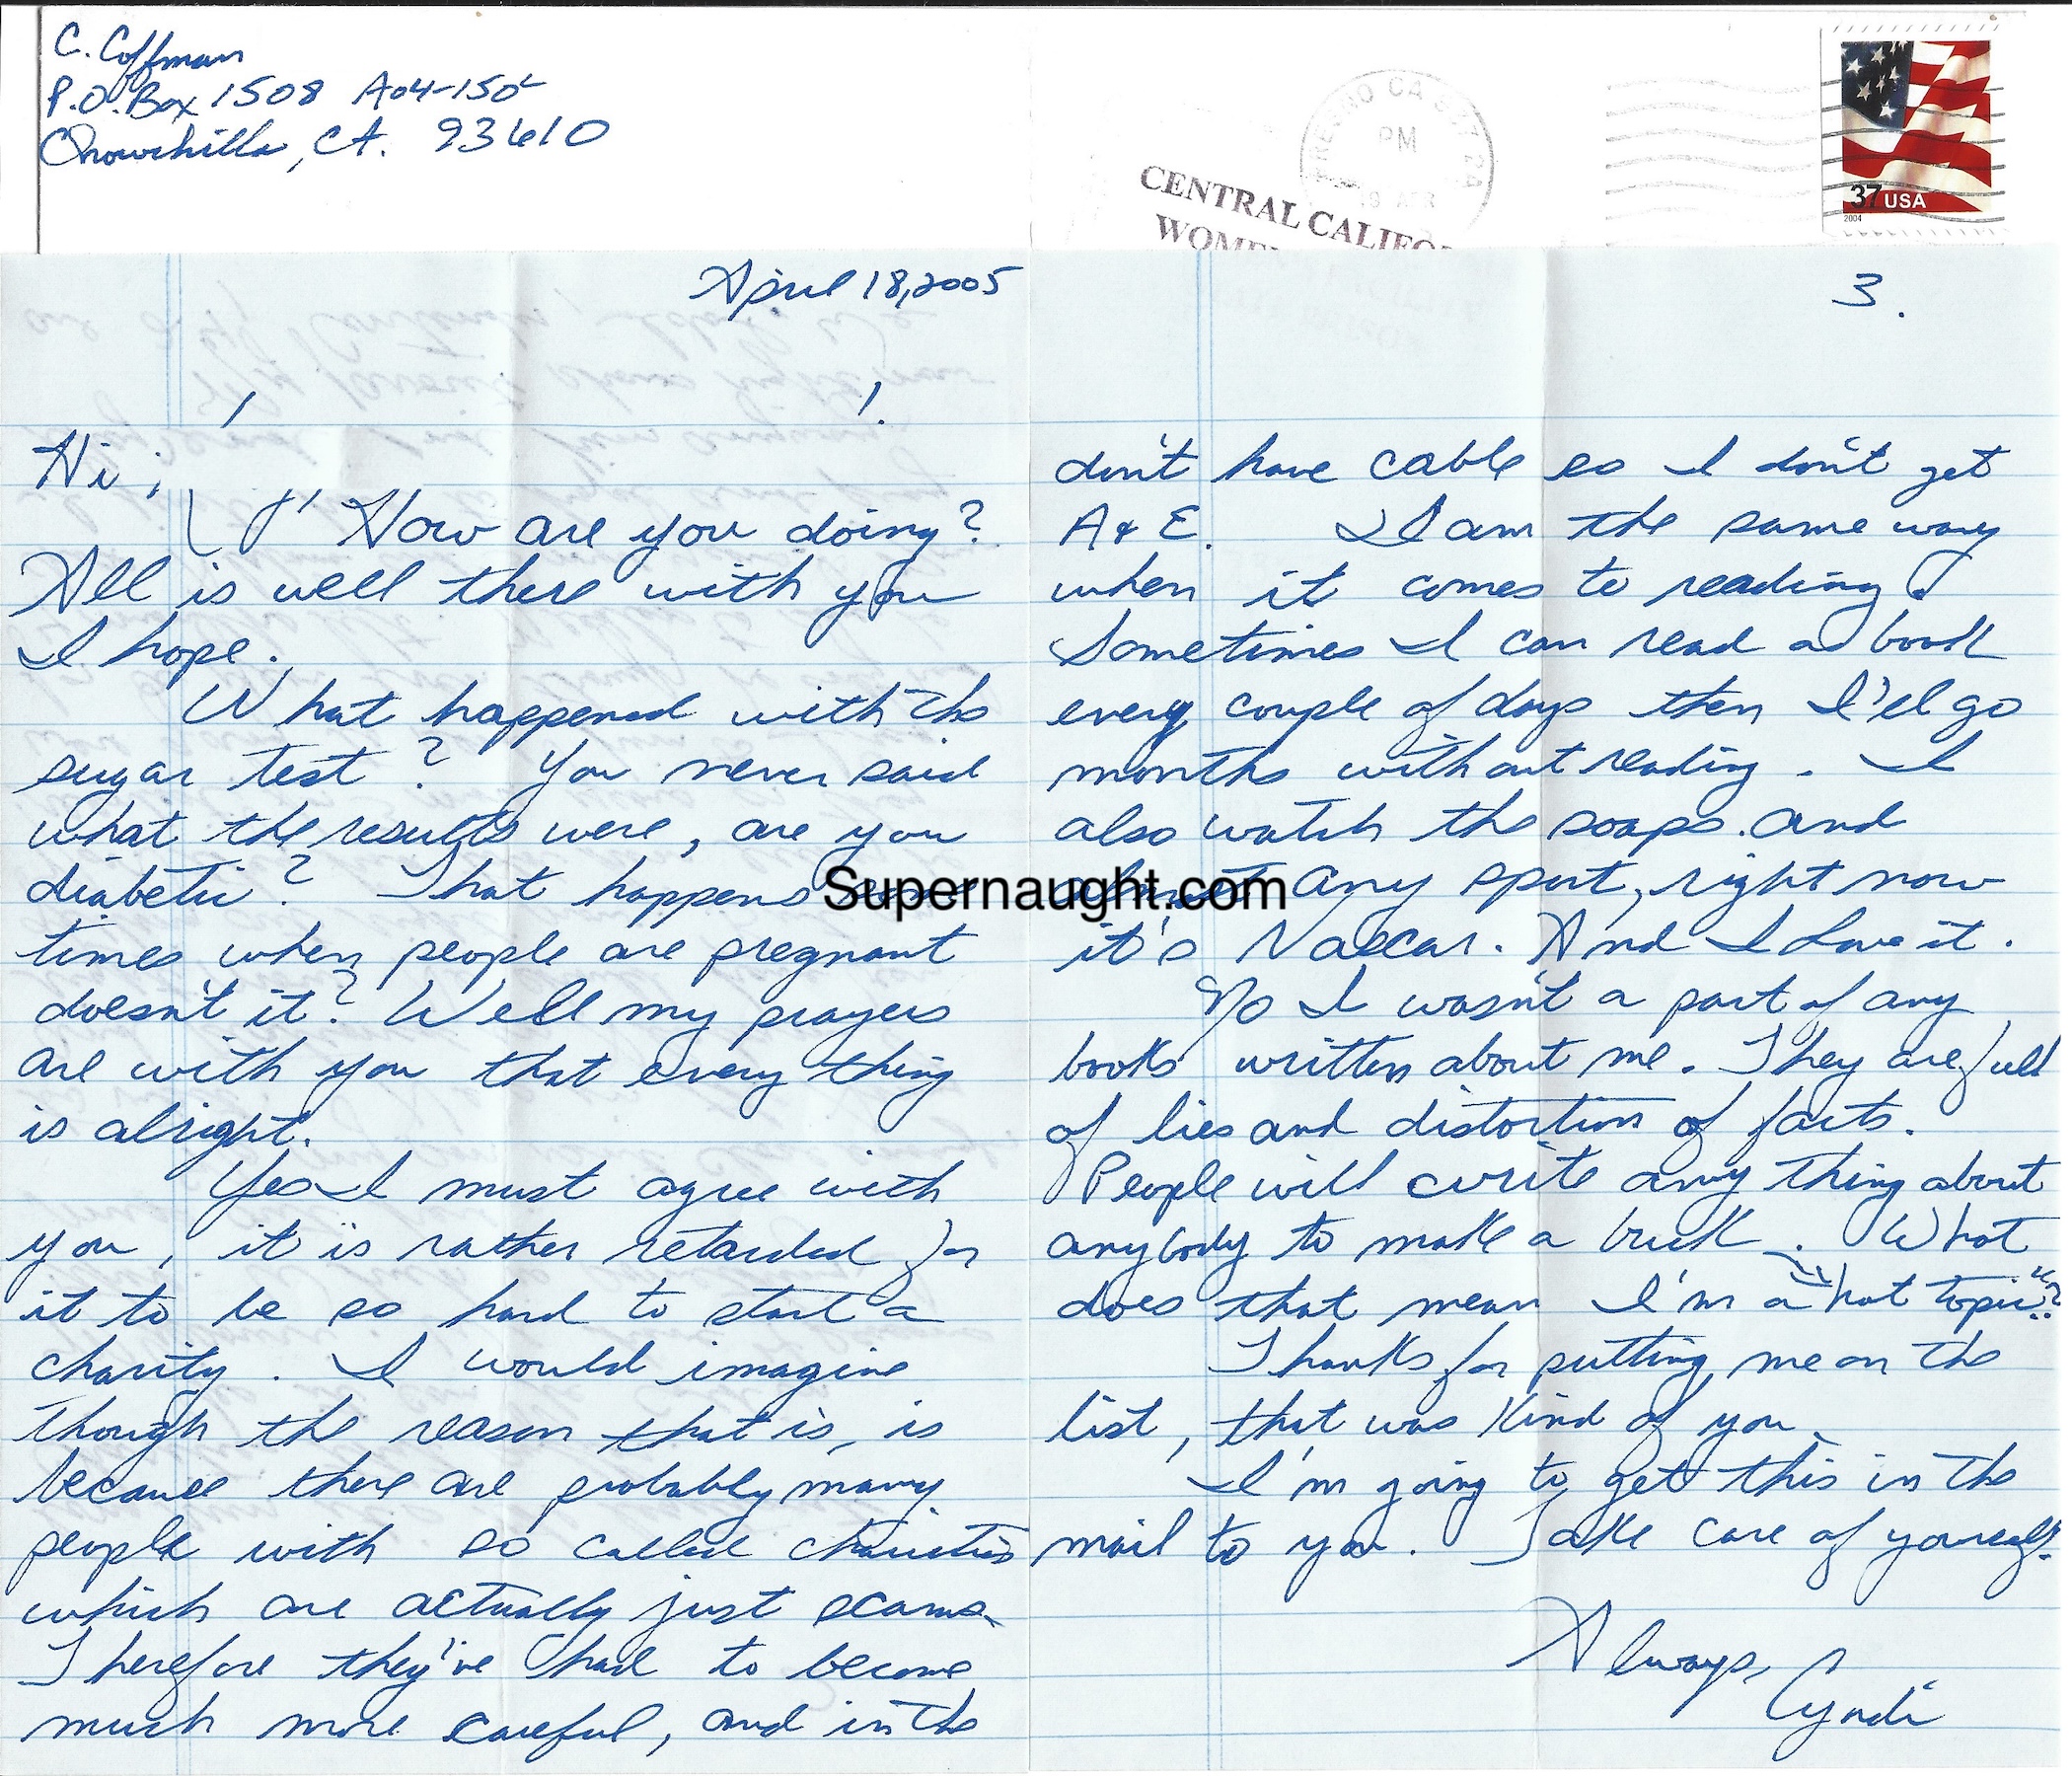 C. Coffman
P.O. Box 1508 A04-150L
Chowchilla, CA. 93610
FRESNO CA
PM
19 APR
CENTRAL CALIFO
WOME
37 USA
2004
April 18, 2005
Hi
How are you doing?
All is well there with you
I hope.
What happened with the
sugar test? You never said
what the results were, are you
diabetic? That happens some
times when people are pregnant
doesn't it? Well my prayers
are with you that every thing
is alright.
Yes I must agree with
you, it is rather retarded for
it to be so hard to start a
charity. I would imagine
though the reason that is, is
because there are probably many
people with so called charities
which are actually just scams.
Therefore they've had to become
much more careful, and in the
3.
don't have cable so I don't get
A & E. I am the same way
when it comes to reading.
Sometimes I can read a book
every couple of days then I'el go
months without reading. I
also watch the soaps. and
almost any sport, right now
it's Nascar. And I love it.
No I wasn't a part of any
books written about me. They are full
of lies and distortions of facts.
People will write any thing about
anybody to make a buck. What
does that mean I'm a "hot topic"?
Thanks for putting me on the
list, that was kind of you.
I'm going to get this in the
mail to you. Take care of yourself.
Always,
Cyndi
Supernaught.com